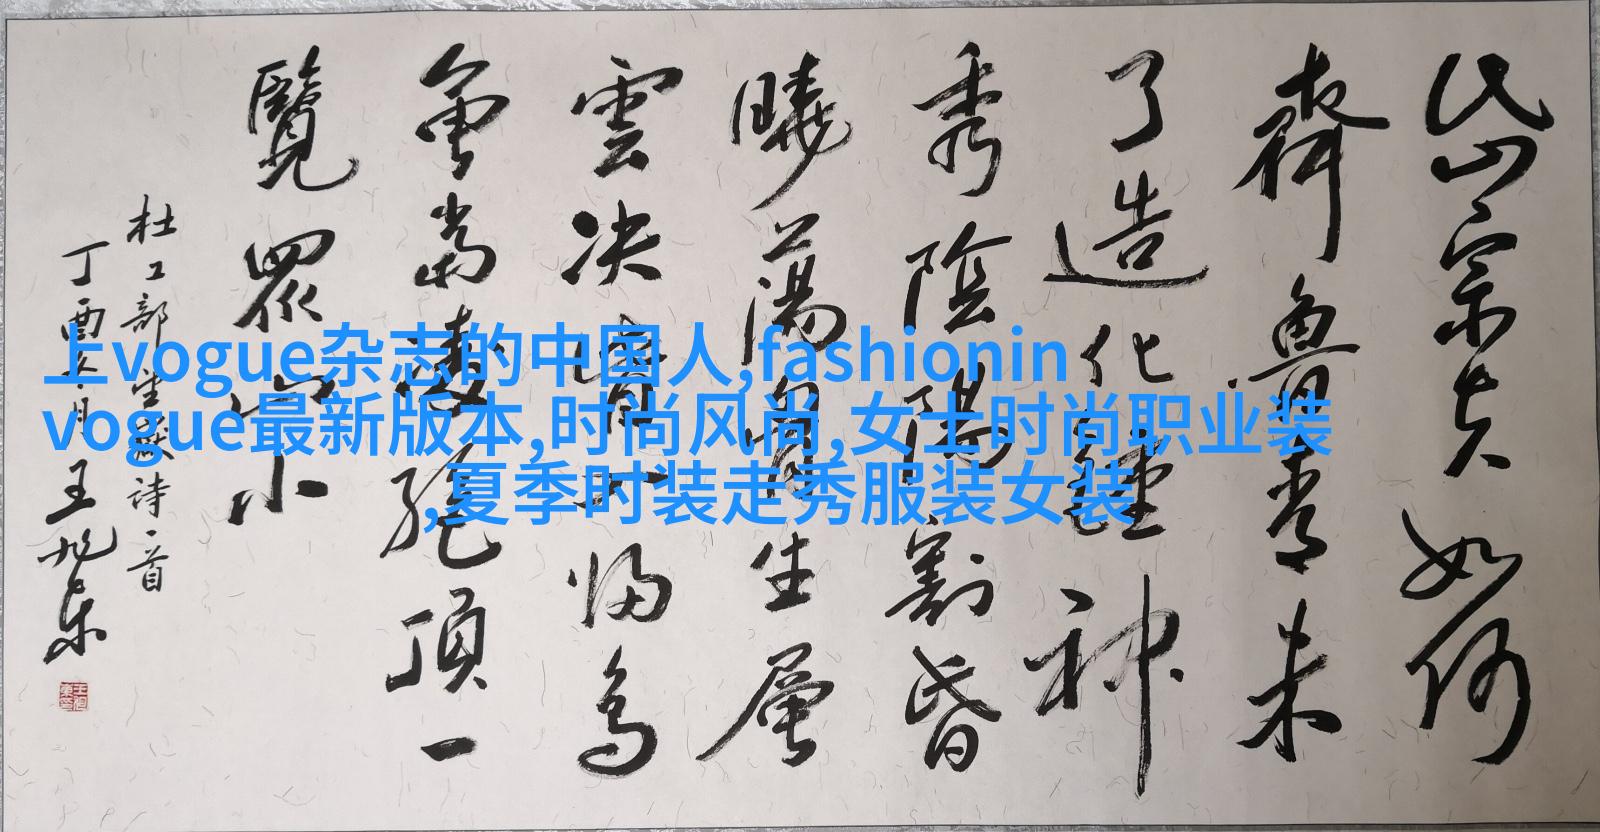 岱宗夫如何
齊魯青未
了造化鍾神
秀陰陽割昏
曉蕩胸生層
雲决眥入歸鳥
會當凌絕頂一
覽眾山小
杜工部望嶽詩一首
丁酉冬月王旭东
上vogue杂志的中国人,fashionin
vogue最新版本,时尚风尚,女士时尚职业装
,夏季时装走秀服装女装